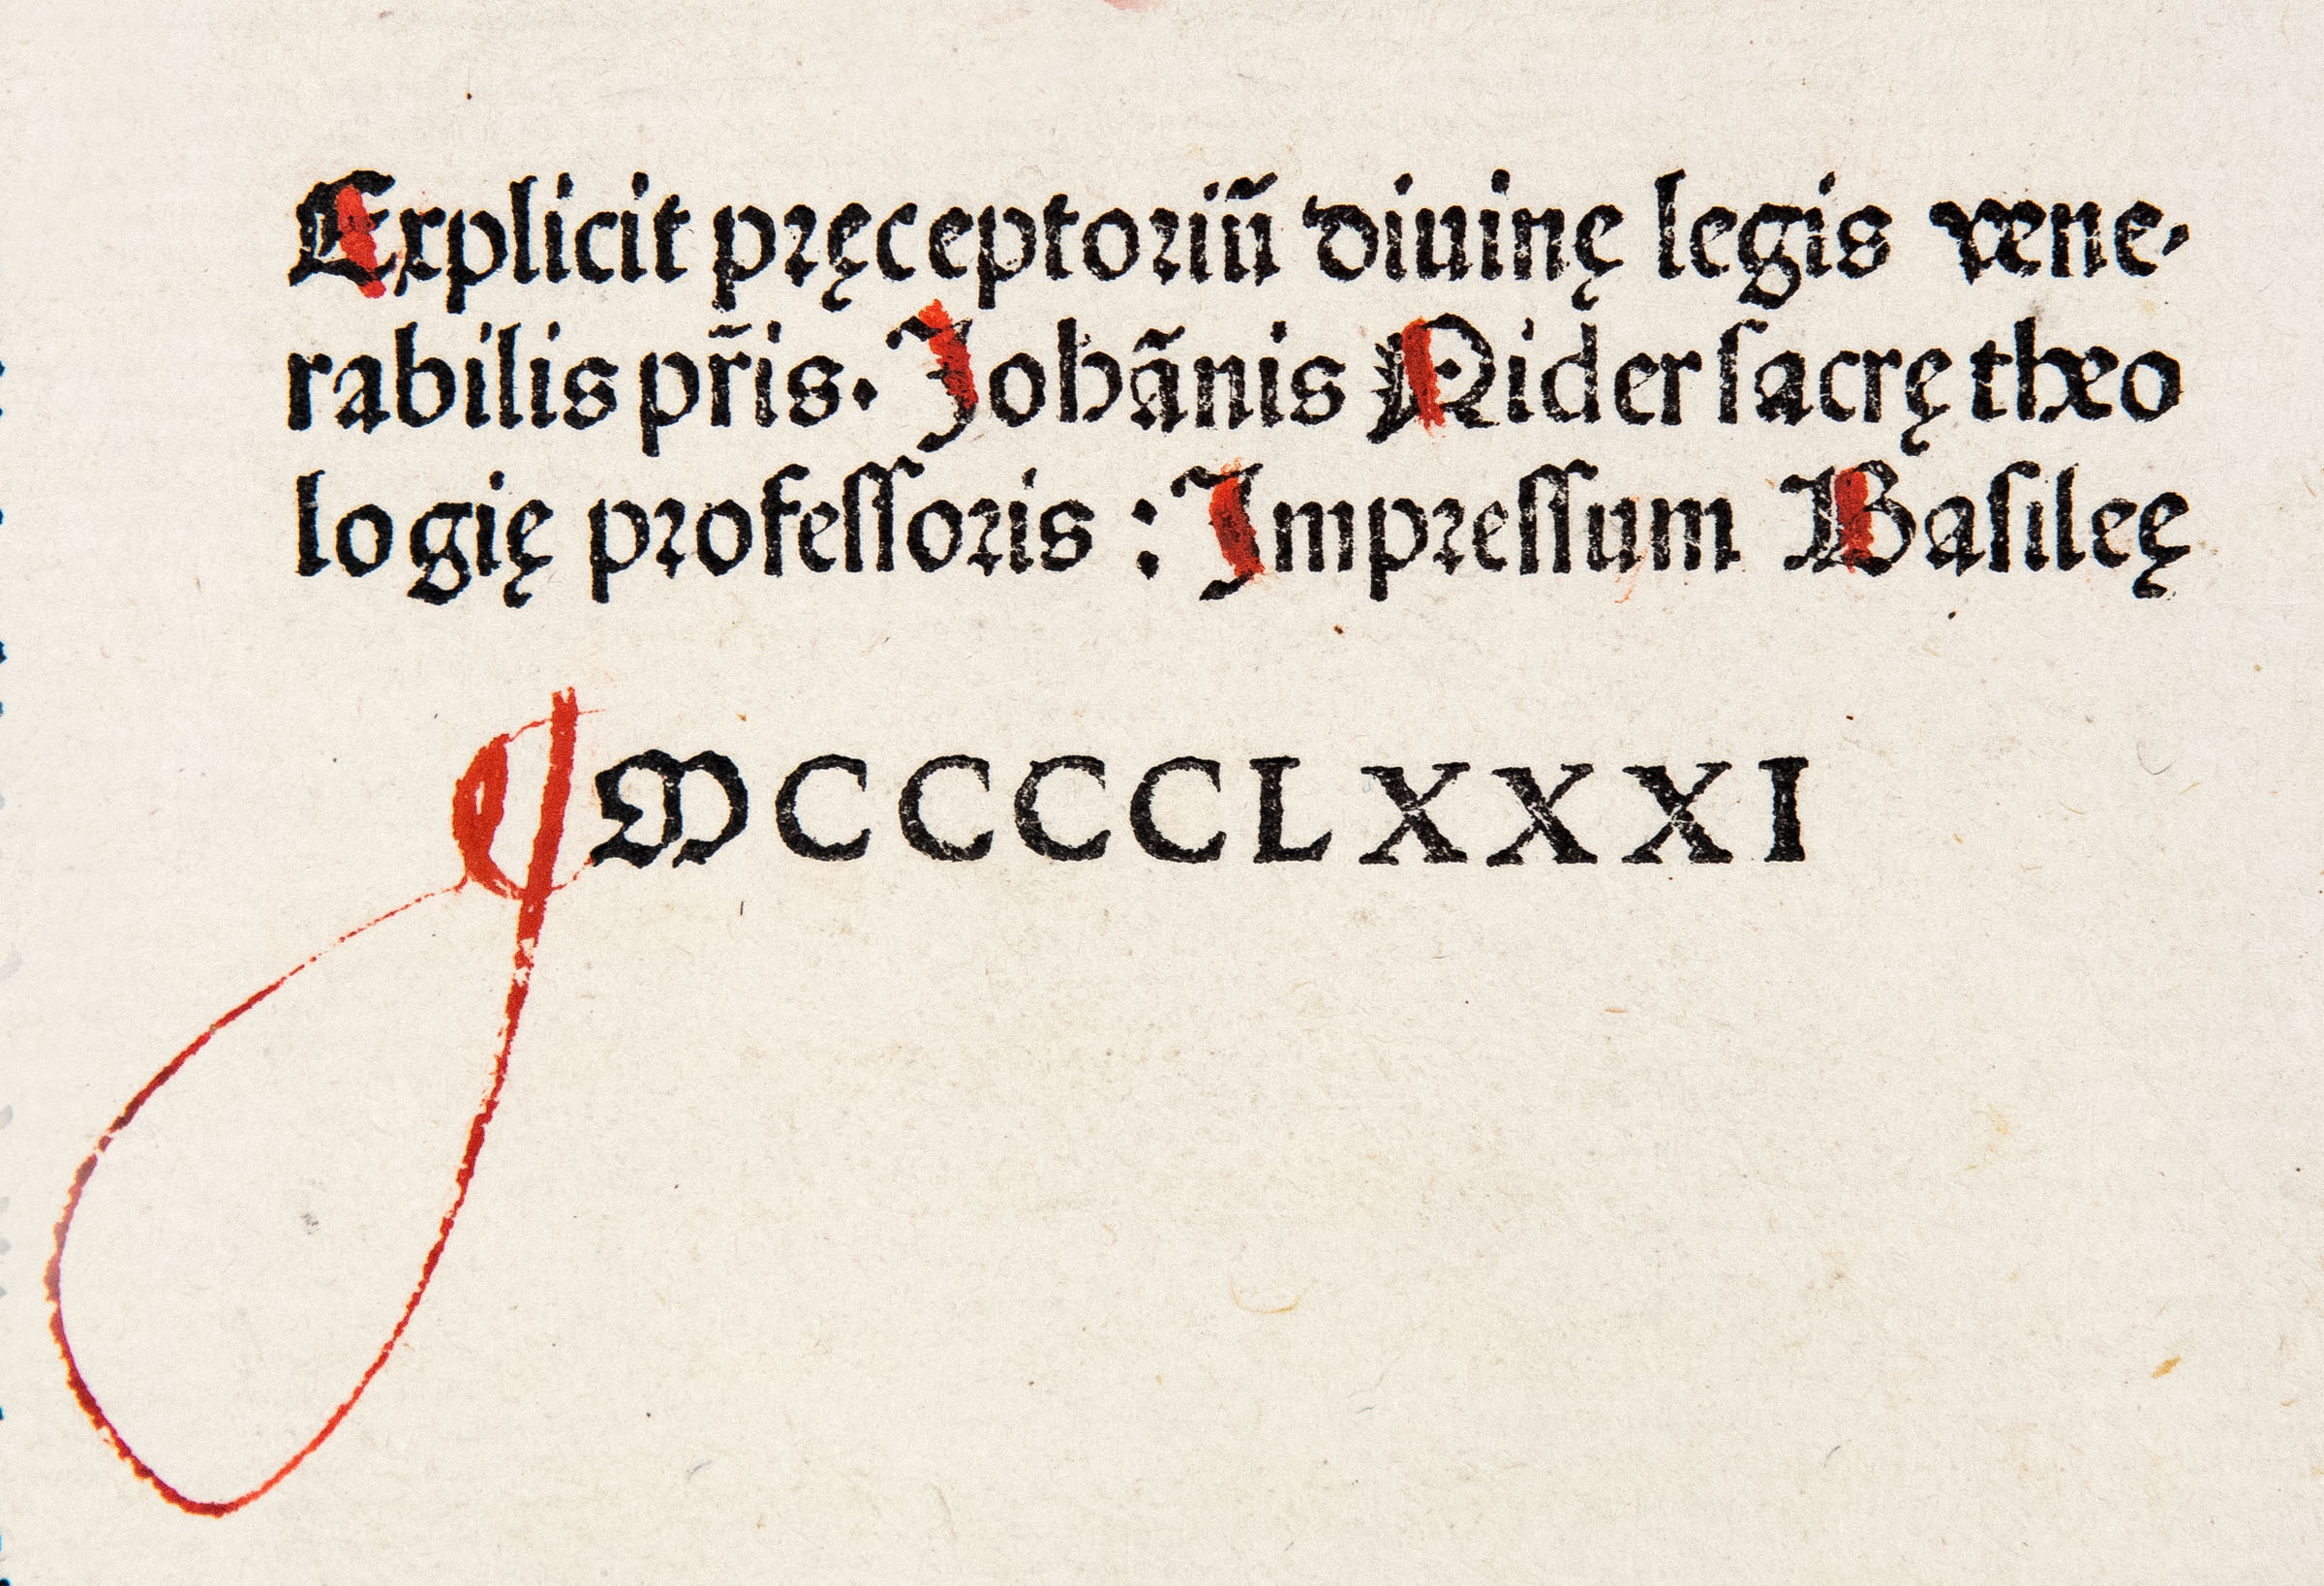 Explicit pręceptoriū diuinę legis vene-
rabilis pr̄is. Johānis Nider ſacrę theo
logię profeſſoris : Impreſſum Baſileę
MCCCCLXXXI